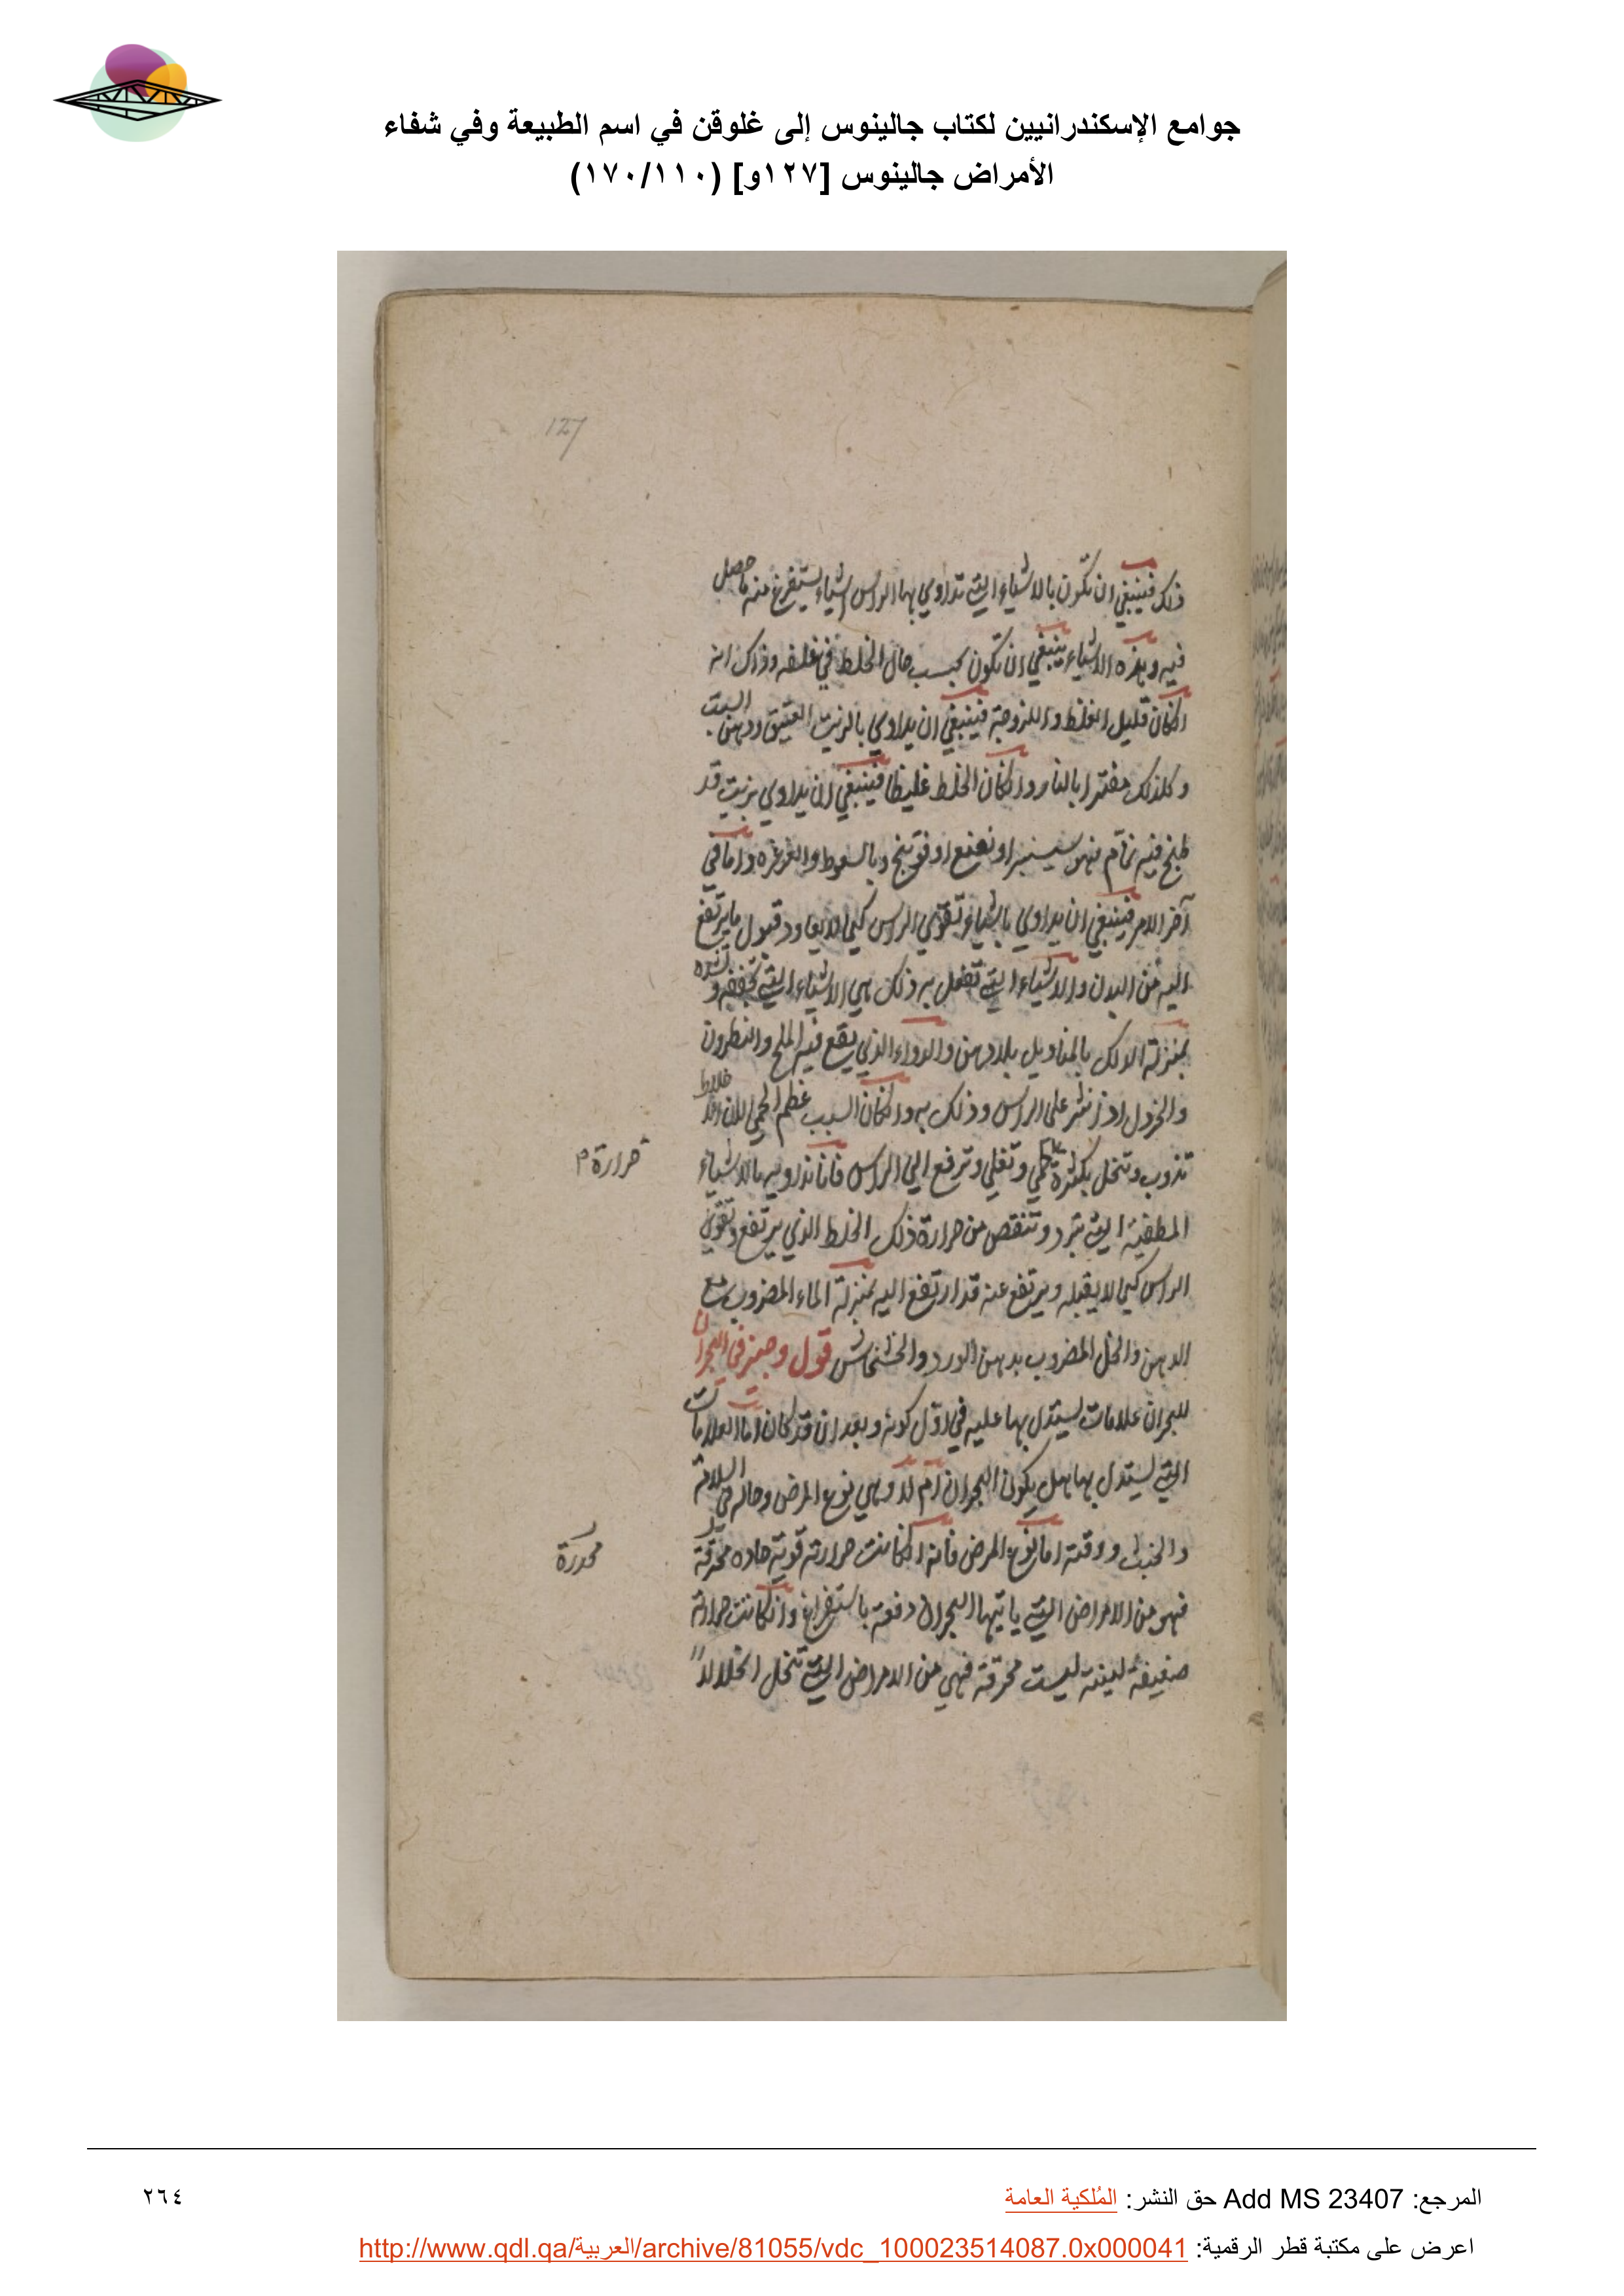 جوامع الإسكندرانيين لكتاب جالينوس إلى غلوقن في اسم الطبيعة وفي شفاء
الأمراض جالينوس [١٢٧و] (١٧٠/١١٠)
127
ذلك فينبغي ان تكون بالاشياء التي تداوي بها الراس اشياء يستفرغ منه ما حصل
فيه وهذه الاشياء ينبغي ان تكون بحسب حال الخلط في غلظه وذلك انه
انكان قليل الغلظ واللزوجة فينبغي ان يداوي بالزيت العتيق ودهن السبت
وكذلك مفترا بالنار وانكان الخلط غليظا فينبغي ان يداوي بزيت قد
طبخ فيه نمام فهو سيسنبر او نعنع او فوتنج وبالسعوط والغرغره واما في
آخر الامر فينبغي ان يداوي باشياء تقوي الراس كي لا يعاود قبول ما يرتفع
اليه من البدن والاشياء التي تفعل به ذلك هي الاشياء التي تجففه و تشده
بمنزلة الدلك بالمناديل بلا دهن والدواء الذي يقع فيه الملح والنطرون
والخردل اذ نثر على الراس ودلك به وانكان السبب عظم الحمى لان الاخلاط
تذوب وتنحل بكثرة الحمي وتغلي وترفع الي الراس فانا نداويه بالاشياء
حرارة م
المطفية التي تبرد وتنقص من حرارة ذلك الخلط الذي يرتفع وتقوي
الراس كي لا يقبله ويرتفع عنه قد ارتفع اليه بمنزلة الماء المضروب مع
الدهن والخل المضروب بدهن الورد والخشخاش قول وجيز في البحران
للبحران علامات يستدل بها عليه في اول كونه وبعد ان قد كان اما العلامات
التي يستدل بها هل يكون البحران ام لا وهي نوع المرض وحاله في السلامة
والخبث ووقته اما نوع المرض فانه انكانت حرارته قوية حاده محرقة
محدرة
فهو من الامراض التي ياتيها البحران دفعة باستفراغ وانكانت حرارته
ضعيفة لينة ليست محرقة فهي من الامراض التي تنحل انحلالا
المرجع: Add MS 23407 حق النشر: المُلكية العامة
٢٦٤
اعرض على مكتبة قطر الرقمية: http://www.qdl.qa/العربية/archive/81055/vdc_100023514087.0x000041